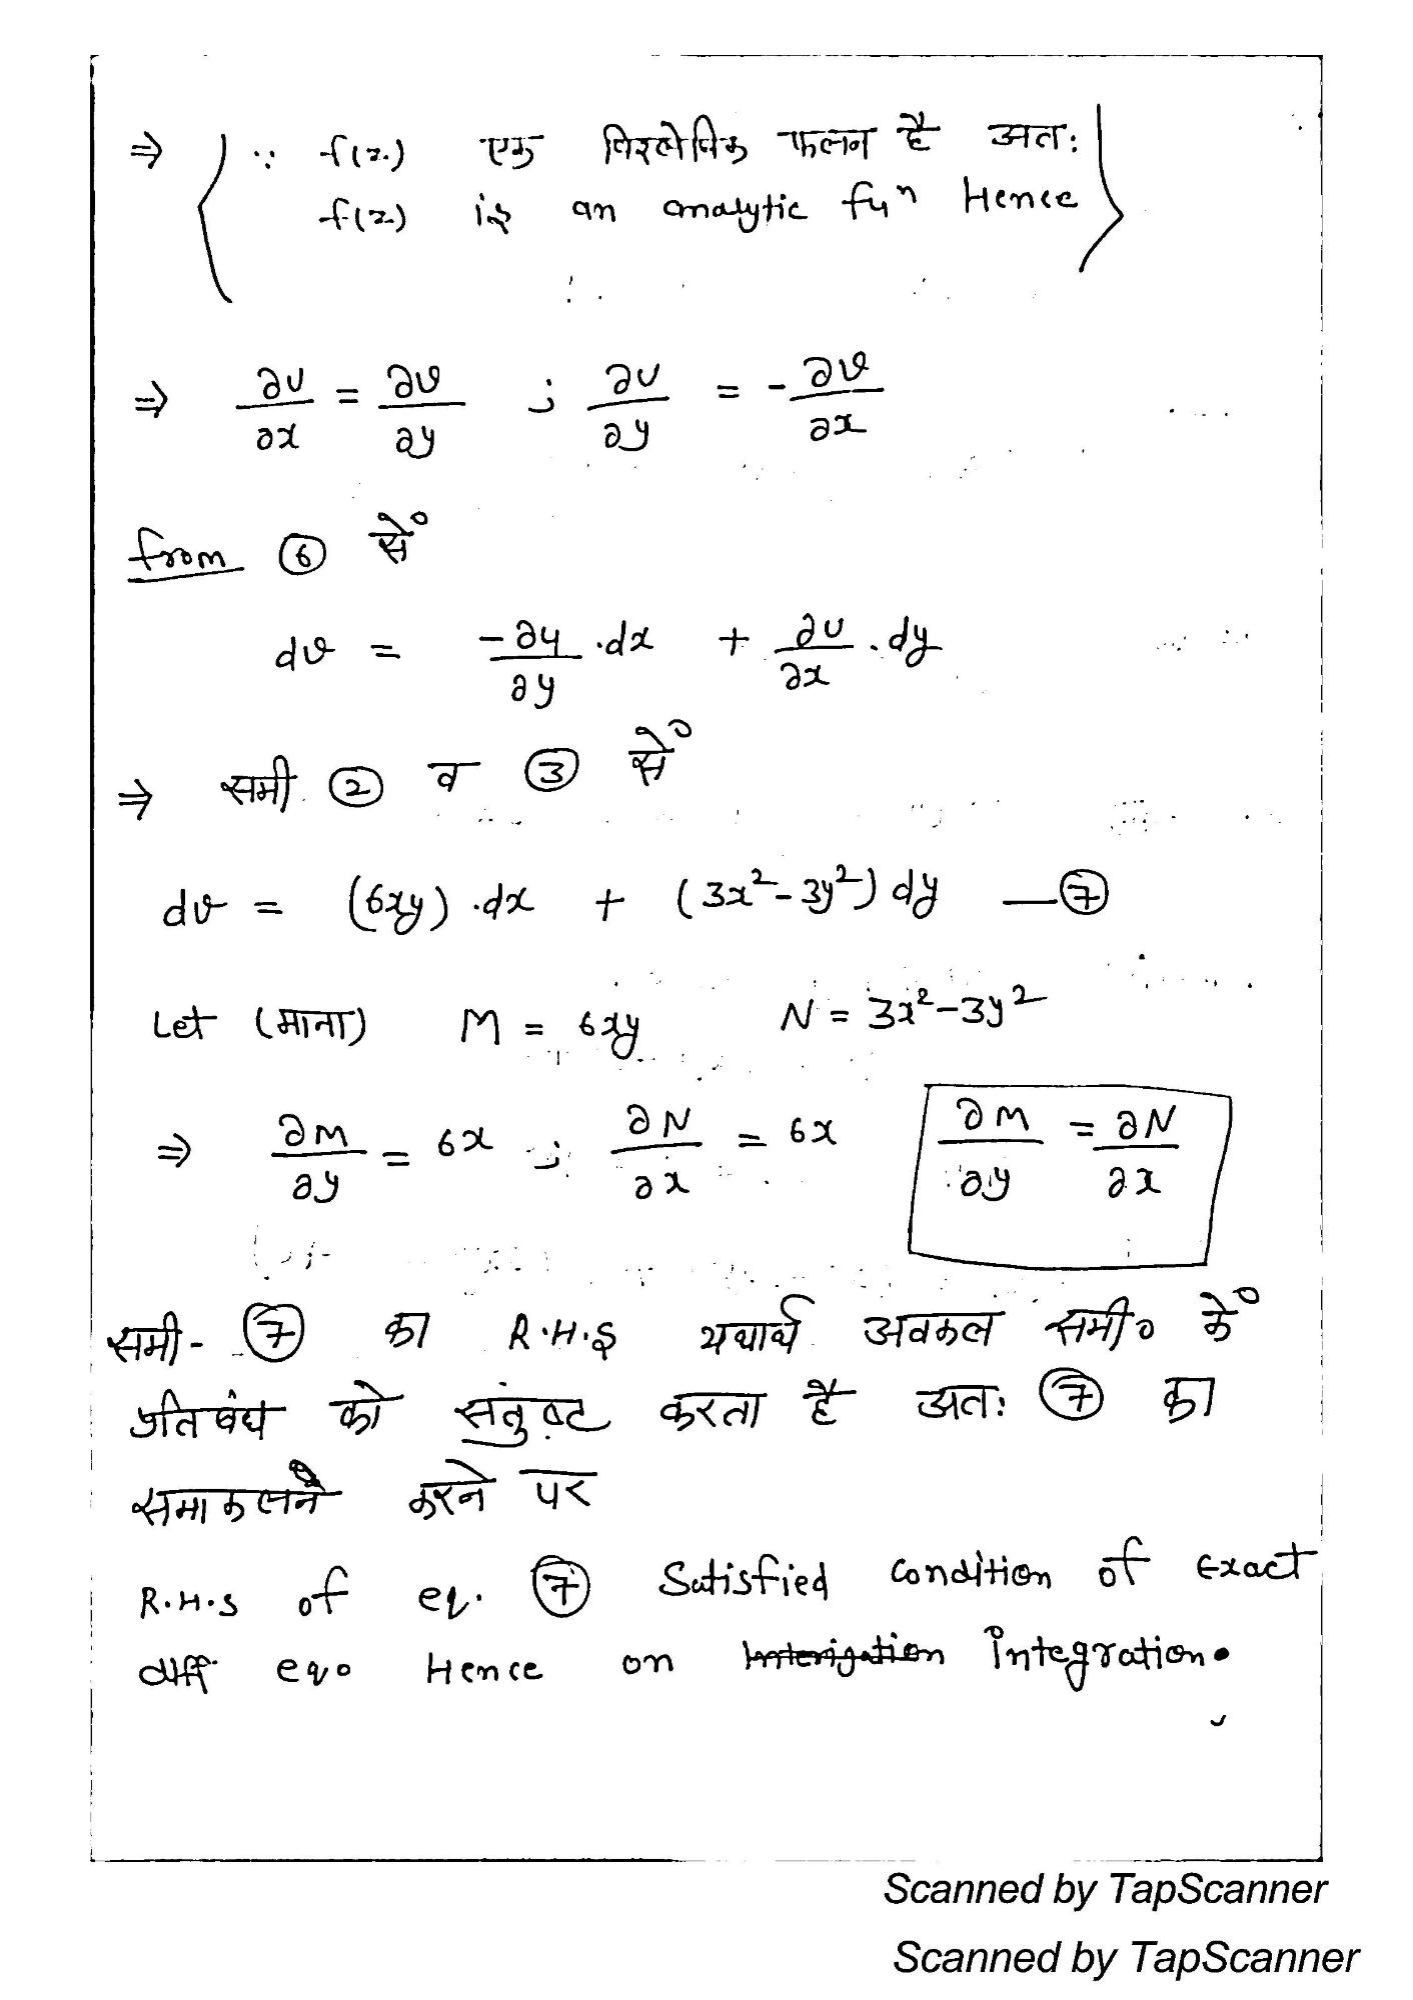 ⇒ ∵ f(z) एक विश्लेषिक फलन है अतः
f(z) is an analytic fuⁿ Hence
⇒ ∂u/∂x = ∂v/∂y ; ∂u/∂y = -∂v/∂x
from ⑥ सें
dv = -∂u/∂y .dx + ∂u/∂x . dy
⇒ समी ② व ③ सें
dv = (6xy) .dx + (3x²-3y²) dy —⑦
Let (माना) M = 6xy N = 3x²-3y²
⇒ ∂M/∂y = 6x ; ∂N/∂x = 6x ∂M/∂y = ∂N/∂x
समी- ⑦ का R.H.S यथार्थ अवकल समी० कें
प्रतिबंध को संतुष्ट करता है अतः ⑦ का
समाकलन करने पर
R.H.S of eq. ⑦ Satisfied condition of Exact
diff eq० Hence on integration.
Scanned by TapScanner
Scanned by TapScanner